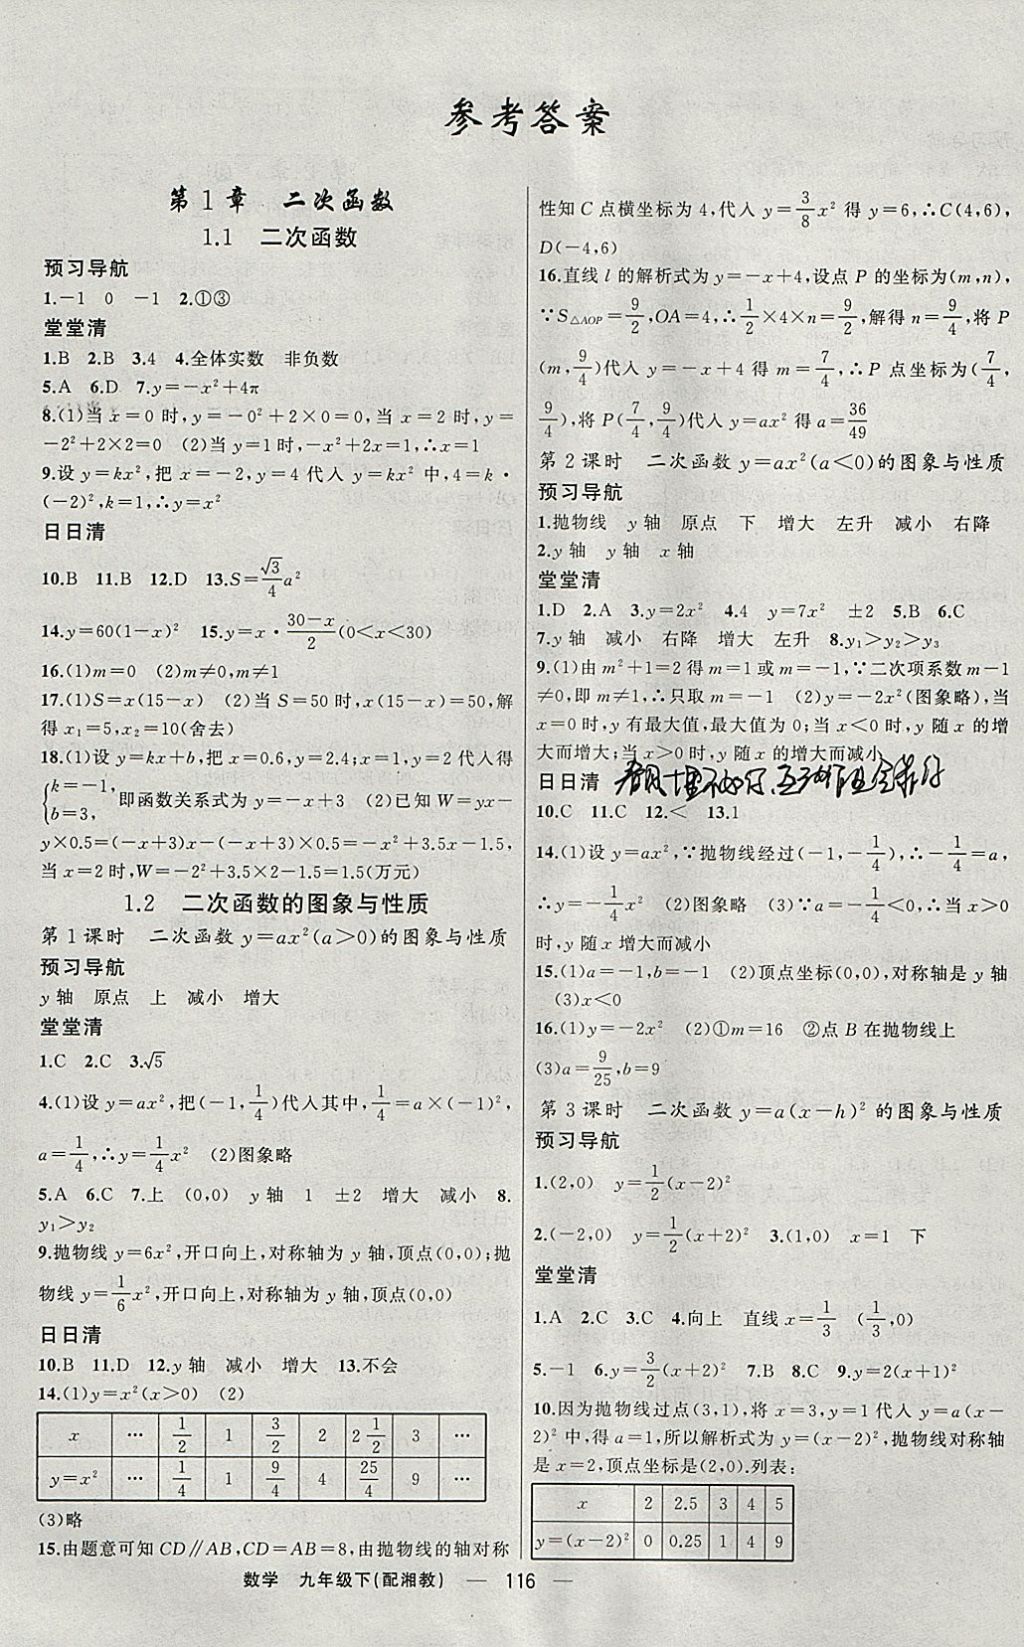 参考答案
第1章 二次函数
1.1 二次函数
预习导航
1.-1 0 -1 2.①③
堂堂清
1.B 2.B 3.4 4.全体实数 非负数
5.A 6.D 7.y=-x²+4π
8.(1)当x=0时,y=-0²+2×0=0,当x=2时,y=
-2²+2×2=0 (2)当y=1时,-x²+2x=1,∴x=1
9.设y=kx²,把x=-2,y=4代入y=kx²中,4=k·
(-2)²,k=1,∴y=x²
日日清
10.B 11.B 12.D 13.S=√3/4a²
14.y=60(1-x)² 15.y=x·30-x/2(0<x<30)
16.(1)m=0 (2)m≠0,m≠1
17.(1)S=x(15-x) (2)当S=50时,x(15-x)=50,解
得x₁=5,x₂=10(舍去)
18.(1)设y=kx+b,把x=0.6,y=2.4;x=1,y=2代入得
{k=-1, b=3, 即函数关系式为y=-x+3 (2)已知W=yx-
y×0.5=(-x+3)x-(-x+3)×0.5=-x²+3.5x-1.5,
当x=2时,W=-2²+3.5×2-1.5=1.5(万元)
1.2 二次函数的图象与性质
第1课时 二次函数y=ax²(a>0)的图象与性质
预习导航
y轴 原点 上 减小 增大
堂堂清
1.C 2.C 3.√5
4.(1)设y=ax²,把(-1,1/4)代入其中,1/4=a×(-1)²,
a=1/4,∴y=1/4x² (2)图象略
5.A 6.C 7.上 (0,0) y轴 1 ±2 增大 减小 8.
y₁>y₂
9.抛物线y=6x²,开口向上,对称轴为y轴,顶点(0,0);抛
物线y=1/6x²,开口向上,对称轴为y轴,顶点(0,0)
日日清
10.B 11.D 12.y轴 减小 增大 13.不会
14.(1)y=x²(x>0) (2)
x … 1/2 1 3/2 2 2 1/2 3 …
y=x² … 1/4 1 9/4 4 25/4 9 …
(3)略
15.由题意可知CD∥AB,CD=AB=8,由抛物线的轴对称
性知C点横坐标为4,代入y=3/8x²得y=6,∴C(4,6),
D(-4,6)
16.直线l的解析式为y=-x+4,设点P的坐标为(m,n),
∵S△AOP=9/2,OA=4,∴1/2×4×n=9/2,解得n=9/4,将P
(m,9/4)代入y=-x+4得m=7/4,∴P点坐标为(7/4,
9/4),将P(7/4,9/4)代入y=ax²得a=36/49
第2课时 二次函数y=ax²(a<0)的图象与性质
预习导航
1.抛物线 y轴 原点 下 增大 左升 减小 右降
2.y轴 y轴 x轴
堂堂清
1.D 2.A 3.y=2x² 4.4 y=7x² ±2 5.B 6.C
7.y轴 减小 右降 增大 左升 8.y₁>y₂>y₃
9.(1)由m²+1=2得m=1或m=-1,∵二次项系数m-1
≠0,即m≠1,∴只取m=-1 (2)y=-2x²(图象略),当
x=0时,y有最大值,最大值为0;当x<0时,y随x的增
大而增大;当x>0时,y随x的增大而减小
日日清
10.C 11.C 12.< 13.1
14.(1)设y=ax²,∵抛物线经过(-1,-1/4),∴-1/4=a,
∴y=-1/4x² (2)图象略 (3)∵a=-1/4<0,∴当x>0
时,y随x增大而减小
15.(1)a=-1,b=-1 (2)顶点坐标(0,0),对称轴是y轴
(3)x<0
16.(1)y=-2x² (2)①m=16 ②点B在抛物线上
(3)a=9/25,b=9
第3课时 二次函数y=a(x-h)²的图象与性质
预习导航
1.(2,0) y=1/2(x-2)²
2.(-2,0) y=1/2(x+2)² 3.(1,0) x=1 下
堂堂清
1.A 2.C 3.C 4.向上 直线x=1/3 (1/3,0)
5.-1 6.y=3/2(x+2)² 7.B 8.C 9.y=2(x+1)²
10.因为抛物线过点(3,1),将x=3,y=1代入y=a(x-
2)²中,得a=1,所以解析式为y=(x-2)²,抛物线对称轴
是x=2,顶点坐标是(2,0).列表:
x 2 2.5 3 4 5
y=(x-2)² 0 0.25 1 4 9
数学 九年级下(配湘教) — 116 —